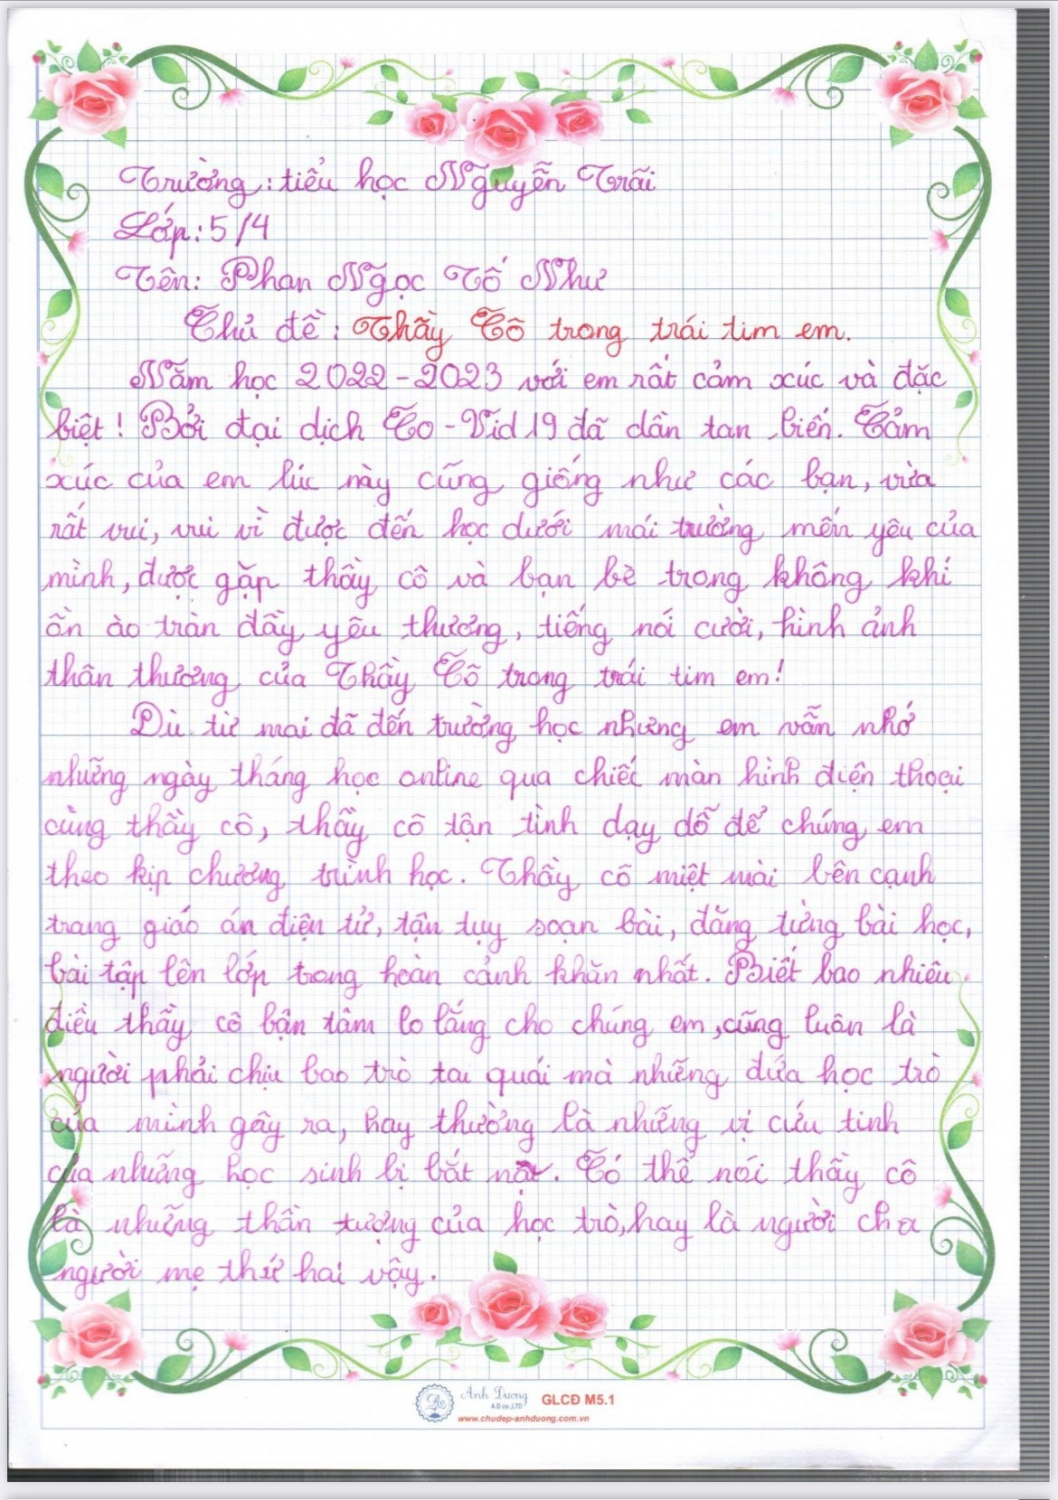 Trường: tiểu học Nguyễn Trãi
Lớp: 5/4
Tên: Phan Ngọc Tố Như
Chủ đề: Thầy Cô trong trái tim em.
Năm học 2022-2023 với em rất cảm xúc và đặc
biệt! Bởi đại dịch Co-Vid 19 đã dần tan biến. Cảm
xúc của em lúc này cũng giống như các bạn, vừa
rất vui, vui vì được đến học dưới mái trường mến yêu của
mình, được gặp thầy cô và bạn bè trong không khí
ồn ào tràn đầy yêu thương, tiếng nói cười, hình ảnh
thân thương của Thầy Cô trong trái tim em!
Dù từ mai đã đến trường học nhưng em vẫn nhớ
những ngày tháng học online qua chiếc màn hình điện thoại
cùng thầy cô, thầy cô tận tình dạy dỗ để chúng em
theo kịp chương trình học. Thầy cô miệt mài bên cạnh
trang giáo án điện tử, tận tụy soạn bài, đăng từng bài học,
bài tập lên lớp trong hoàn cảnh khăn nhất. Biết bao nhiêu
điều thầy cô bận tâm lo lắng cho chúng em, cũng luôn là
người phải chịu bao trò tai quái mà những đứa học trò
của mình gây ra, hay thường là những vị cứu tinh
của những học sinh bị bắt nạt. Có thể nói thầy cô
là những thần tượng của học trò, hay là người cha
người mẹ thứ hai vậy.
Anh Dương
A.D co.,LTD
GLCĐ M5.1
www.chudep-anhduong.com.vn